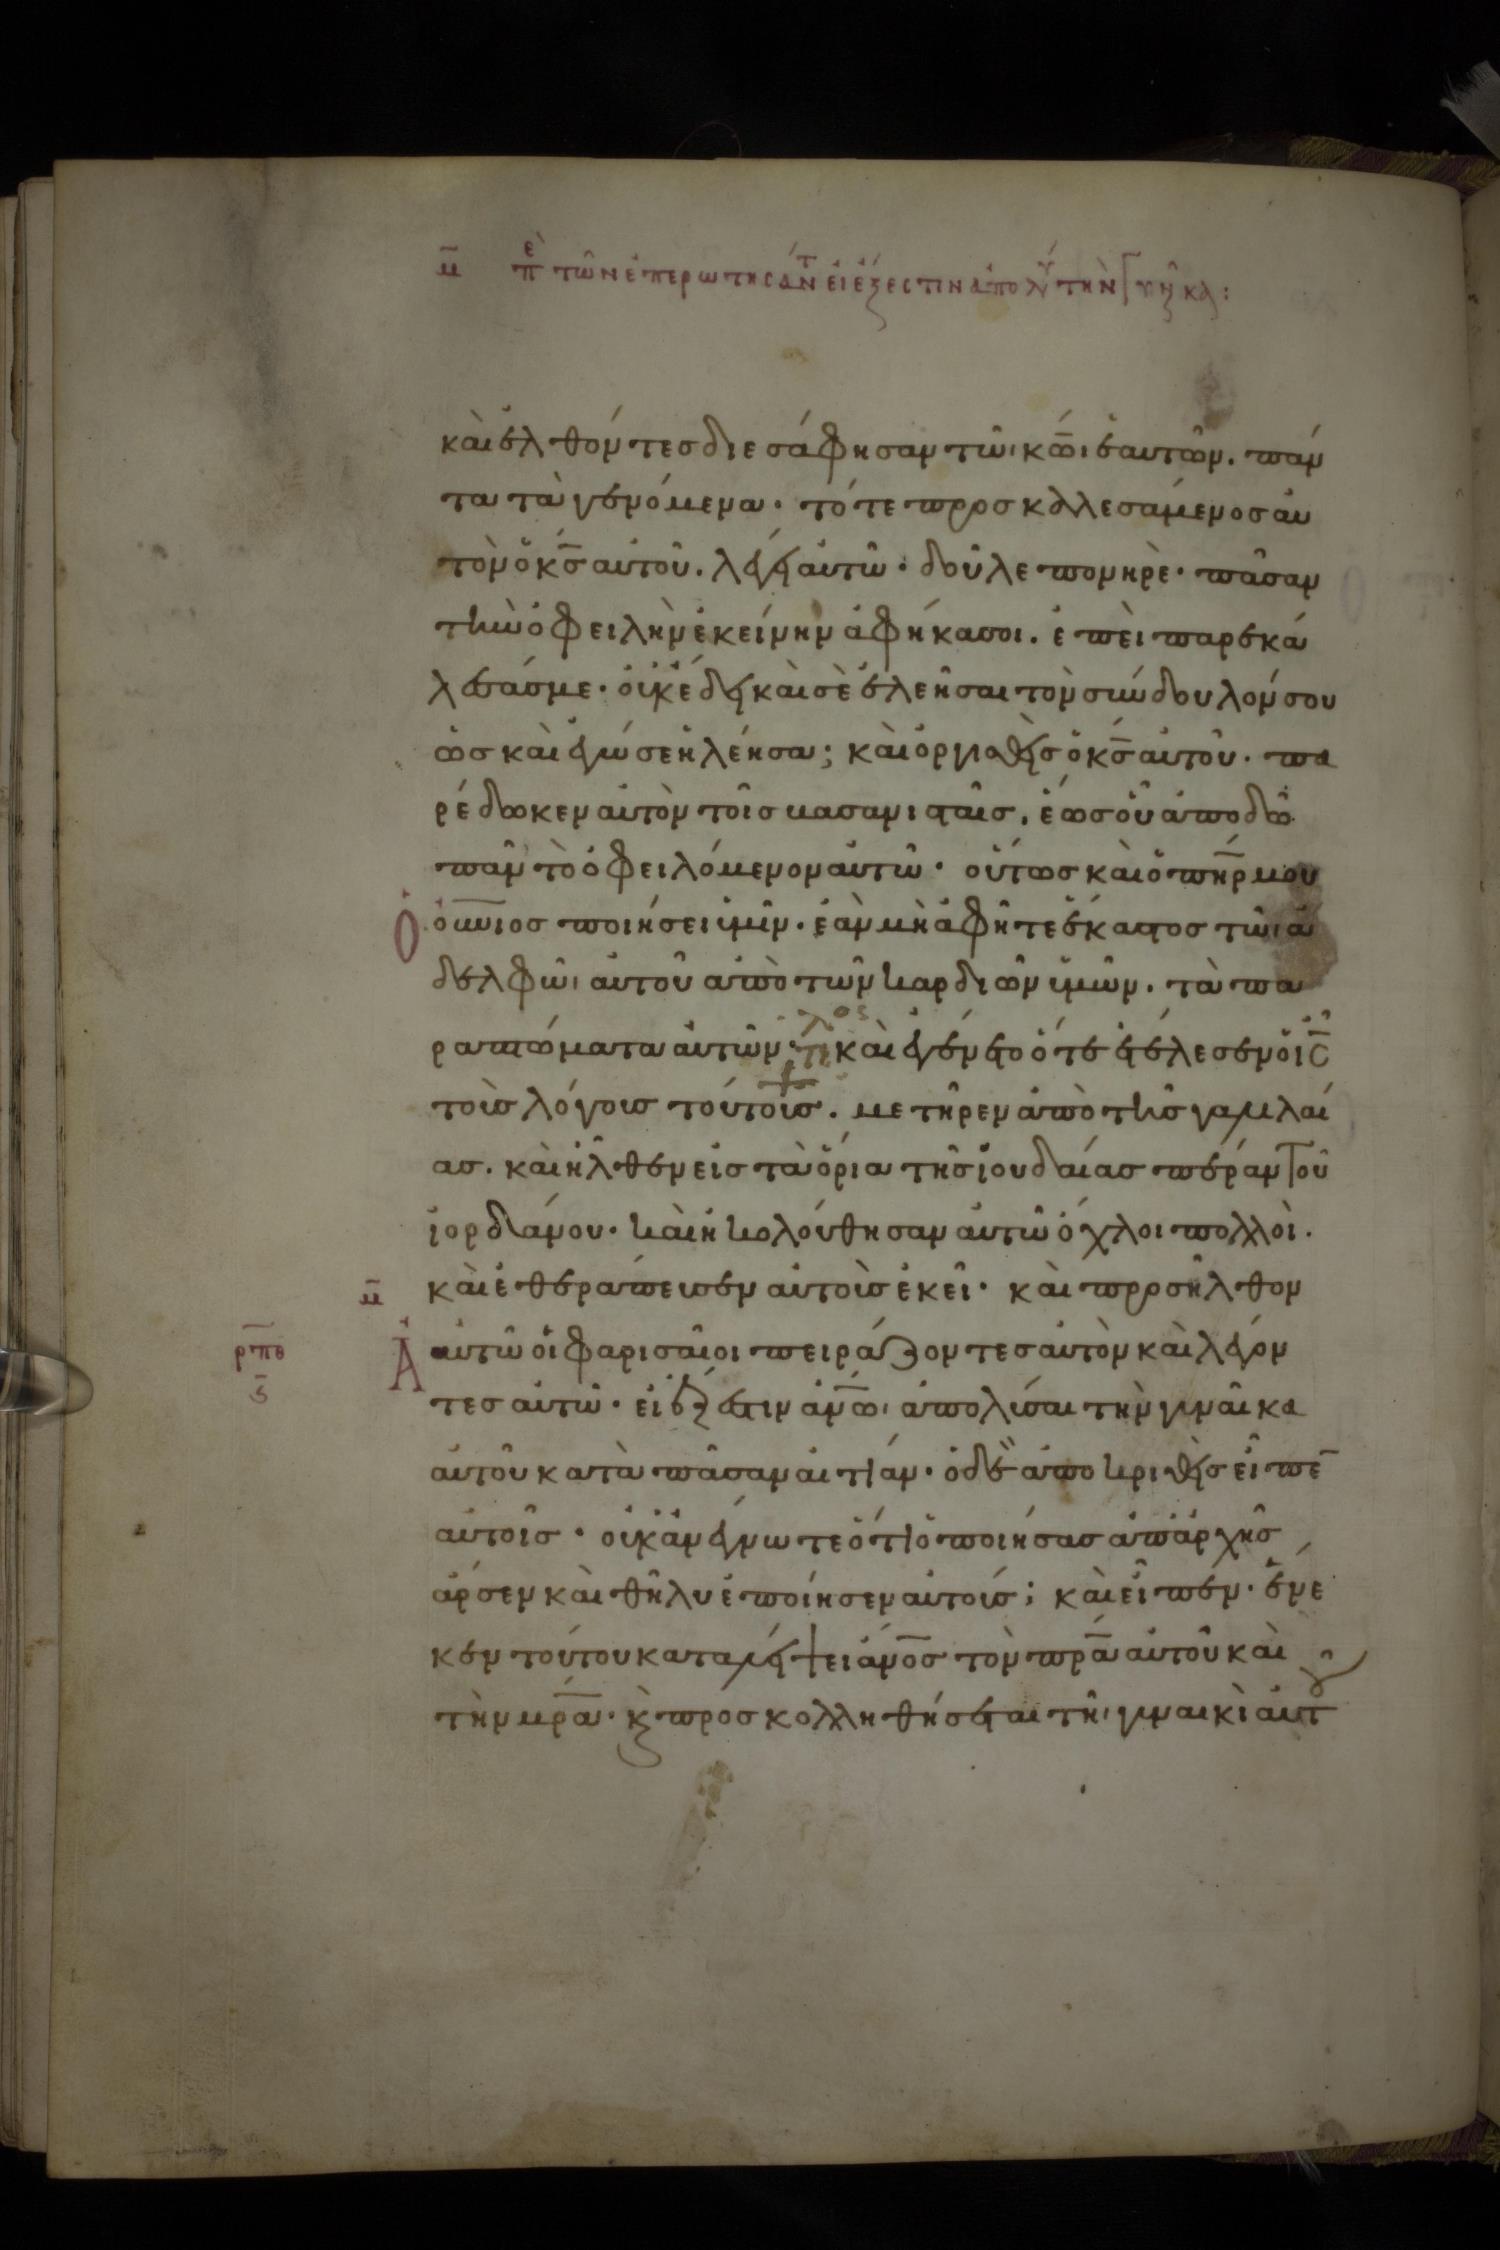 μ̅ πὲ τῶν ἐπερωτησάντ εἰ ἔξεστιν ἀπολύ τὴν γυν̂κα:
καὶ ἐλθόντες διεσάφησαν τῶι κω̅ι ἑαυτῶν. πάν
τα τὰ γενόμενα· τότε προσκαλεσάμενος αυ
τὸν ὁ κ̅ς αὐτοῦ. λέγει αὐτῶ· δοῦλε πονηρὲ· πᾶσαν
τὴν ὀφειλὴν ἐκείνην ἀφήκα σοι. ἐπεὶ παρεκά
λεσάς με· οὐκ ἔδει καὶ σὲ ἐλεῆσαι τὸν σύνδουλόν σου
ὡς καὶ ἐγώ σε ἠλέησα; καὶ ὀργισθεὶς ὁ κ̅ς αὐτοῦ. πα
ρέδωκεν αὐτὸν τοῖς βασανισταῖς. ἕως οὗ ἀποδῶ
πᾶν τὸ ὀφειλόμενον αὐτῶ· οὕτως καὶ ὁ πη̅ρ μου
Ὁ ὁ ου̅νιος ποιήσει ὑμῖν. ἐὰν μὴ ἀφῆτε ἕκαστος τῶι ἀ
δελφῶι αὐτοῦ ἀπὸ τῶν καρδιῶν ὑμῶν. τὰ πα
ραπτώματα αὐτῶν· τέλος καὶ ἐγένετο ὅτε ἐτέλεσεν ὁ ι̅ς
τοὺς λόγους τούτους. μετῆρεν ἀπὸ τῆς γαλιλαί
ας. καὶ ἦλθεν εἰς τὰ ὅρια τῆς ἰουδαίας πέραν τοῦ
ἰορδάνου· καὶ ἠκολούθησαν αὐτῶ ὄχλοι πολλοὶ.
μ̅ καὶ ἐθεράπευσεν αὐτοὺς ἐκεῖ· καὶ προσῆλθον
ρπθ ϛ̅ Ἀ αὐτῶ οἱ φαρισαῖοι πειράζοντες αὐτὸν καὶ λέγον
τες αὐτῶ· εἰ ἔξεστιν ἀν̅ω ἀπολῦσαι τὴν γυναῖκα
αὐτοῦ κατὰ πᾶσαν αἰτίαν· ὁ δὲ ἀποκριθεὶς εἶπε̅
αὐτοῖς· οὐκ ἀνέγνωτε ὅτι ὁ ποιήσας ἀπ' ἀρχῆς
ἄρσεν καὶ θῆλυ ἐποίησεν αὐτούς; καὶ εἶπεν· ἕνε
κεν τούτου καταλείψει ἄν̅ος τὸν πρ̅α αὐτοῦ καὶ
τὴν μρ̅α· κ̀ προσκολληθήσεται τῆι γυναικὶ αὐτοῦ